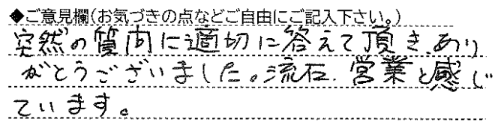 ◆ご意見欄(お気づきの点などご自由にご記入下さい。)
突然の質問に適切に答えて頂き、あり
がとうございました。流石、営業と感じ
ています。